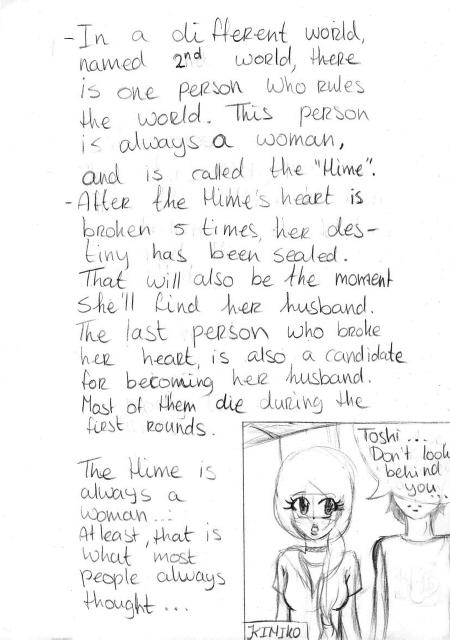 -In a different world,
named 2nd world, there
is one person who rules
the world. This person
is always a woman,
and is called the "Hime".
-After the Hime's heart is
broken 5 times, her des-
tiny has been sealed.
That will also be the moment
She'll find her husband.
The last person who broke
her heart, is also a candidate
for becoming her husband.
Most of them die during the
first rounds.
The Hime is
always a
woman...
Atleast, that is
what most
people always
thought...
Toshi...
Don't look
behind
you...
KIMIKO